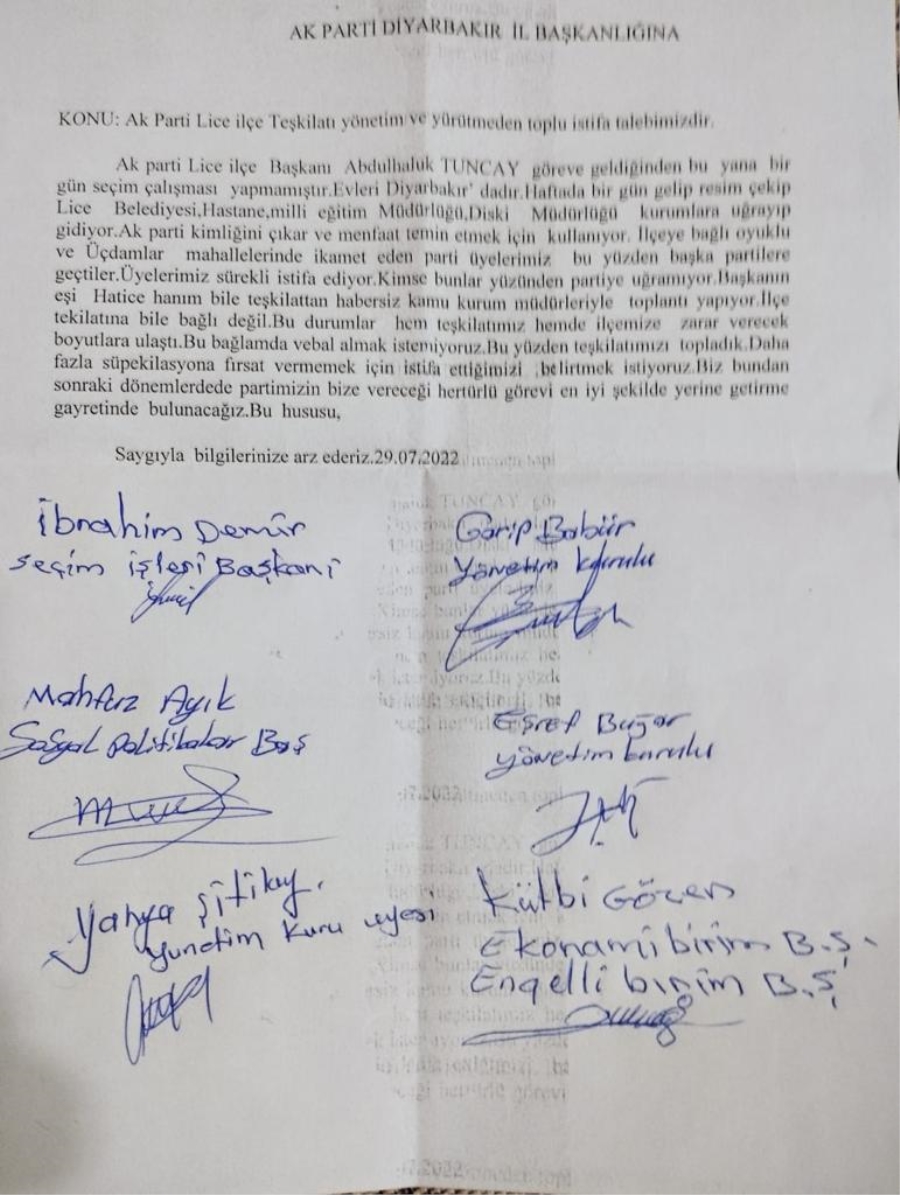 AK PARTİ DİYARBAKIR İL BAŞKANLIĞINA
KONU: Ak Parti Lice ilçe Teşkilatı yönetim ve yürütmeden toplu istifa talebimizdir.
Ak parti Lice ilçe Başkanı Abdulhaluk TUNCAY göreve geldiğinden bu yana bir
gün seçim çalışması yapmamıştır.Evleri Diyarbakır' dadır.Haftada bir gün gelip resim çekip
Lice Belediyesi,Hastane,milli eğitim Müdürlüğü,Diski Müdürlüğü kurumlara uğrayıp
gidiyor.Ak parti kimliğini çıkar ve menfaat temin etmek için kullanıyor. İlçeye bağlı oyuklu
ve Üçdamlar mahallelerinde ikamet eden parti üyelerimiz bu yüzden başka partilere
geçtiler.Üyelerimiz sürekli istifa ediyor.Kimse bunlar yüzünden partiye uğramıyor.Başkanın
eşi Hatice hanım bile teşkilattan habersiz kamu kurum müdürleriyle toplantı yapıyor.İlçe
tekilatına bile bağlı değil.Bu durumlar hem teşkilatımız hemde ilçemize zarar verecek
boyutlara ulaştı.Bu bağlamda vebal almak istemiyoruz.Bu yüzden teşkilatımızı topladık.Daha
fazla süpekilasyona fırsat vermemek için istifa ettiğimizi belirtmek istiyoruz.Biz bundan
sonraki dönemlerdede partimizin bize vereceği hertürlü görevi en iyi şekilde yerine getirme
gayretinde bulunacağız.Bu hususu,
Saygıyla bilgilerinize arz ederiz.29.07.2022
İbrahim Demir
Seçim işleri Başkani
Garip Babür
Yönetim kurulu
Mahfuz Ayık
Sosyal politikalar Baş
Eşref Buğar
yönetim kurulu
Yahya
Yunetim Kuru uyesi
Kütbi Gözen
Ekonami birim B.Ş.
Engelli birim B.Ş